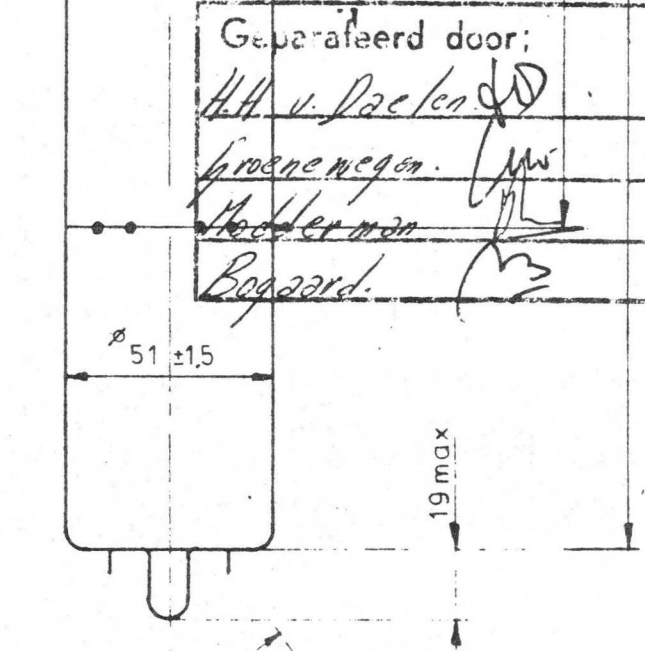 Geparafeerd door:
H.H v. Daelen.
Groenewegen.
Modderman
Bogaard.
ø 51 ±1,5
19 max